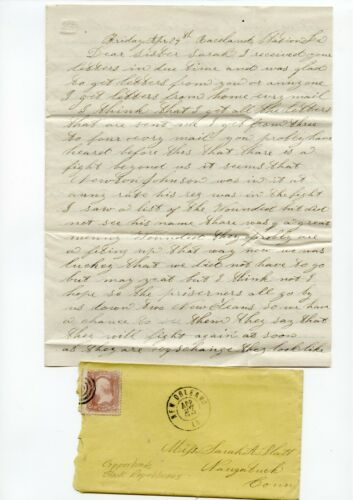 Friday Apr 29th Racelands Station La
Dear Sister Sarah I received your
letters in due time and was glad
to get letters from you or anny one
I get letters from home evry mail
I think that I got all the letters
that are sent me I get from three
to four evry mail you probly have
heard before this that thare is a
fight beyond us it seems that
Newton Johnson was in it at
anny rate his reg was in the fight
I saw a list of the wounded but did
not see his name thare was a great
menny wounded they probly are
a fiting up that way now we was
luckey that we did not have to go
but may yeat but I think not I
hope so the prisers all go by
us down two New Orleans so we have
a chance to see them they say that
they will fight again as soon
as they are exschange they look like
NEW ORLEANS
APR
LA
Miss Sarah A. Platt
Naugatuck
Conn
Copperheads
Black Republicans